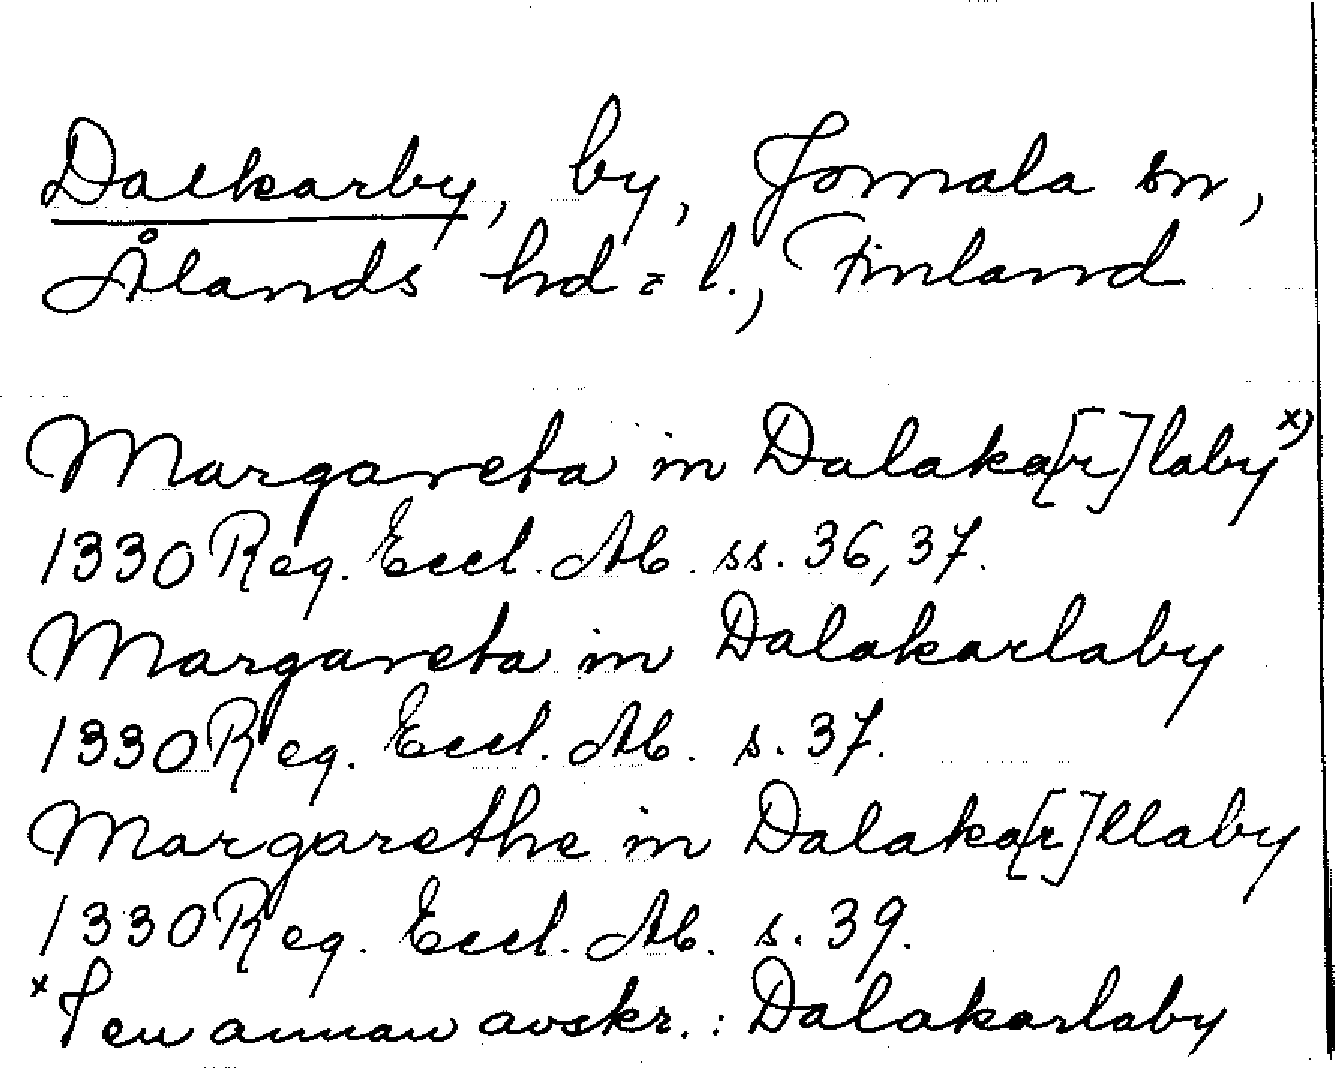 Dalkarby, by, Jomala sn,
Ålands hd = l., Finland
Margareta in Dalaka[r]laby x)
1330 Reg. Eccl. Ab. ss. 36, 37.
Margareta in Dalakarlaby
1330 Reg. Eccl. Ab. s. 37.
Margarethe in Dalaka[r]llaby
1330 Reg. Eccl. Ab. s. 39.
x I en annan avskr.: Dalakarlaby